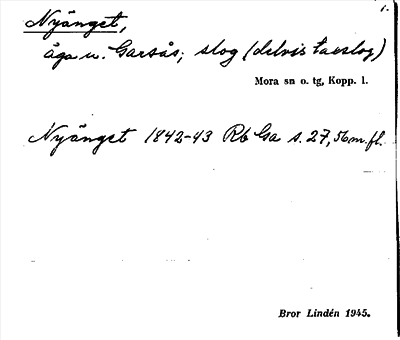 1.
Nyänget,
äga u. Garsås; slog (delvis tavslog)
Mora sn o. tg, Kopp. l.
Nyänget 1842-43 Rb Ga s. 27, 56 m. fl.
Bror Lindén 1945.